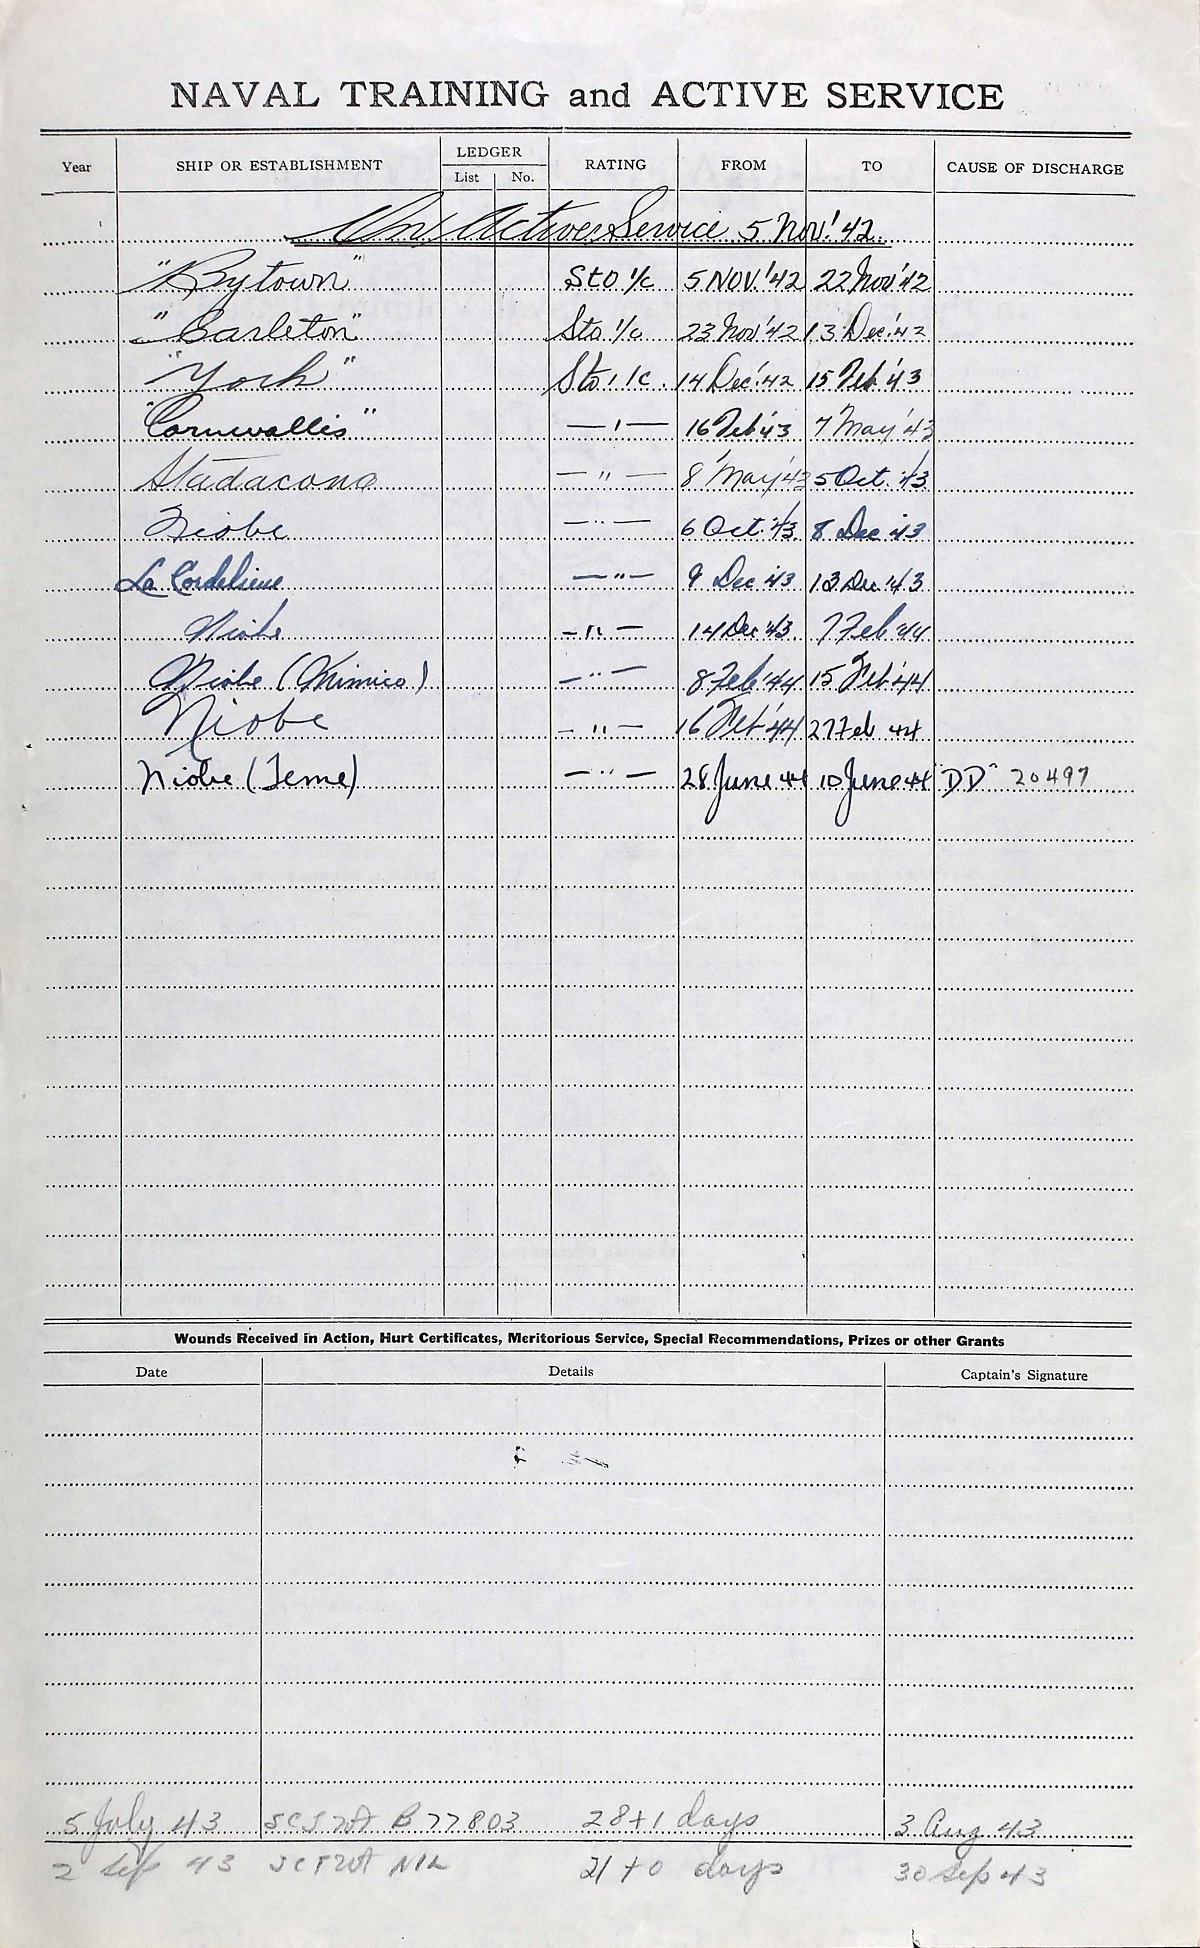 NAVAL TRAINING and ACTIVE SERVICE
Year SHIP OR ESTABLISHMENT LEDGER List No. RATING FROM TO CAUSE OF DISCHARGE
On Active Service 5 Nov! 42.
"Bytown" Sto 1/c 5 NOV.'42 22 Nov'42
"Carleton" Sto 1/c 23 Nov'42 13 Dec.'42
"York" Sto 1/c. 14 Dec.'42 15 Feb'43
"Cornwallis" — " — 16 Feb'43 7 May'43
Stadacona — " — 8 May'43 5 Oct.'43
Niobe — " — 6 Oct.'43 8 Dec '43
La Cordeliere — " — 9 Dec '43 13 Dec '43
Niobe — " — 14 Dec '43 7 Feb '44
Niobe (Mimico) — " — 8 Feb '44 15 Feb '44
Niobe — " — 16 Feb '44 27 Feb 44
Niobe (Teme) — " — 28 June 44 10 June 44 "DD" 20497
Wounds Received in Action, Hurt Certificates, Meritorious Service, Special Recommendations, Prizes or other Grants
Date Details Captain's Signature
5 July 43 B 77803 28+1 days 3 Aug 43
2 Sep 43 NIL 21+0 days 30 Sep 43